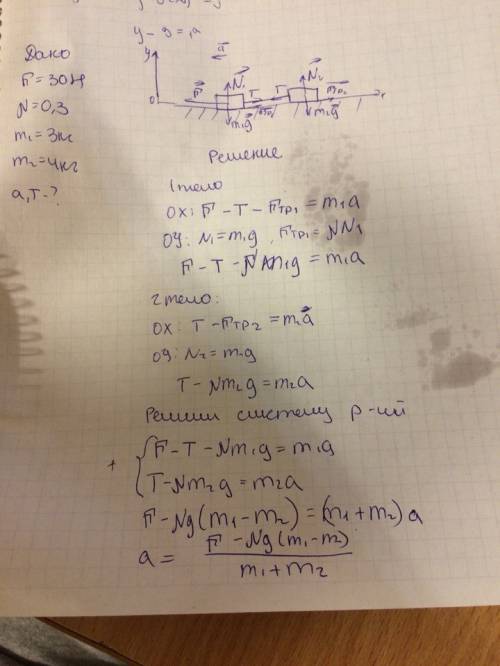 y - g = ,a
Дано
F = 30 Н
N = 0,3
m₁ = 3 кг
m₂ = 4 кг
a, T - ?
y a
F N₁ T T N₂ Fтр₂
0 m₁g Fтр₁ m₂g x
Решение
1 тело
ox: F - T - Fтр₁ = m₁a
oy: N₁ = m₁g , Fтр₁ = NN₁
F - T - Nm₁g = m₁a
2 тело:
ox: T - Fтр₂ = m₂a
oy: N₂ = m₂g
T - Nm₂g = m₂a
Решим систему р-ий
+ { F - T - Nm₁g = m₁g
T - Nm₂g = m₂a
F - Ng(m₁ - m₂) = (m₁ + m₂) a
a = F - Ng(m₁ - m₂)
m₁ + m₂